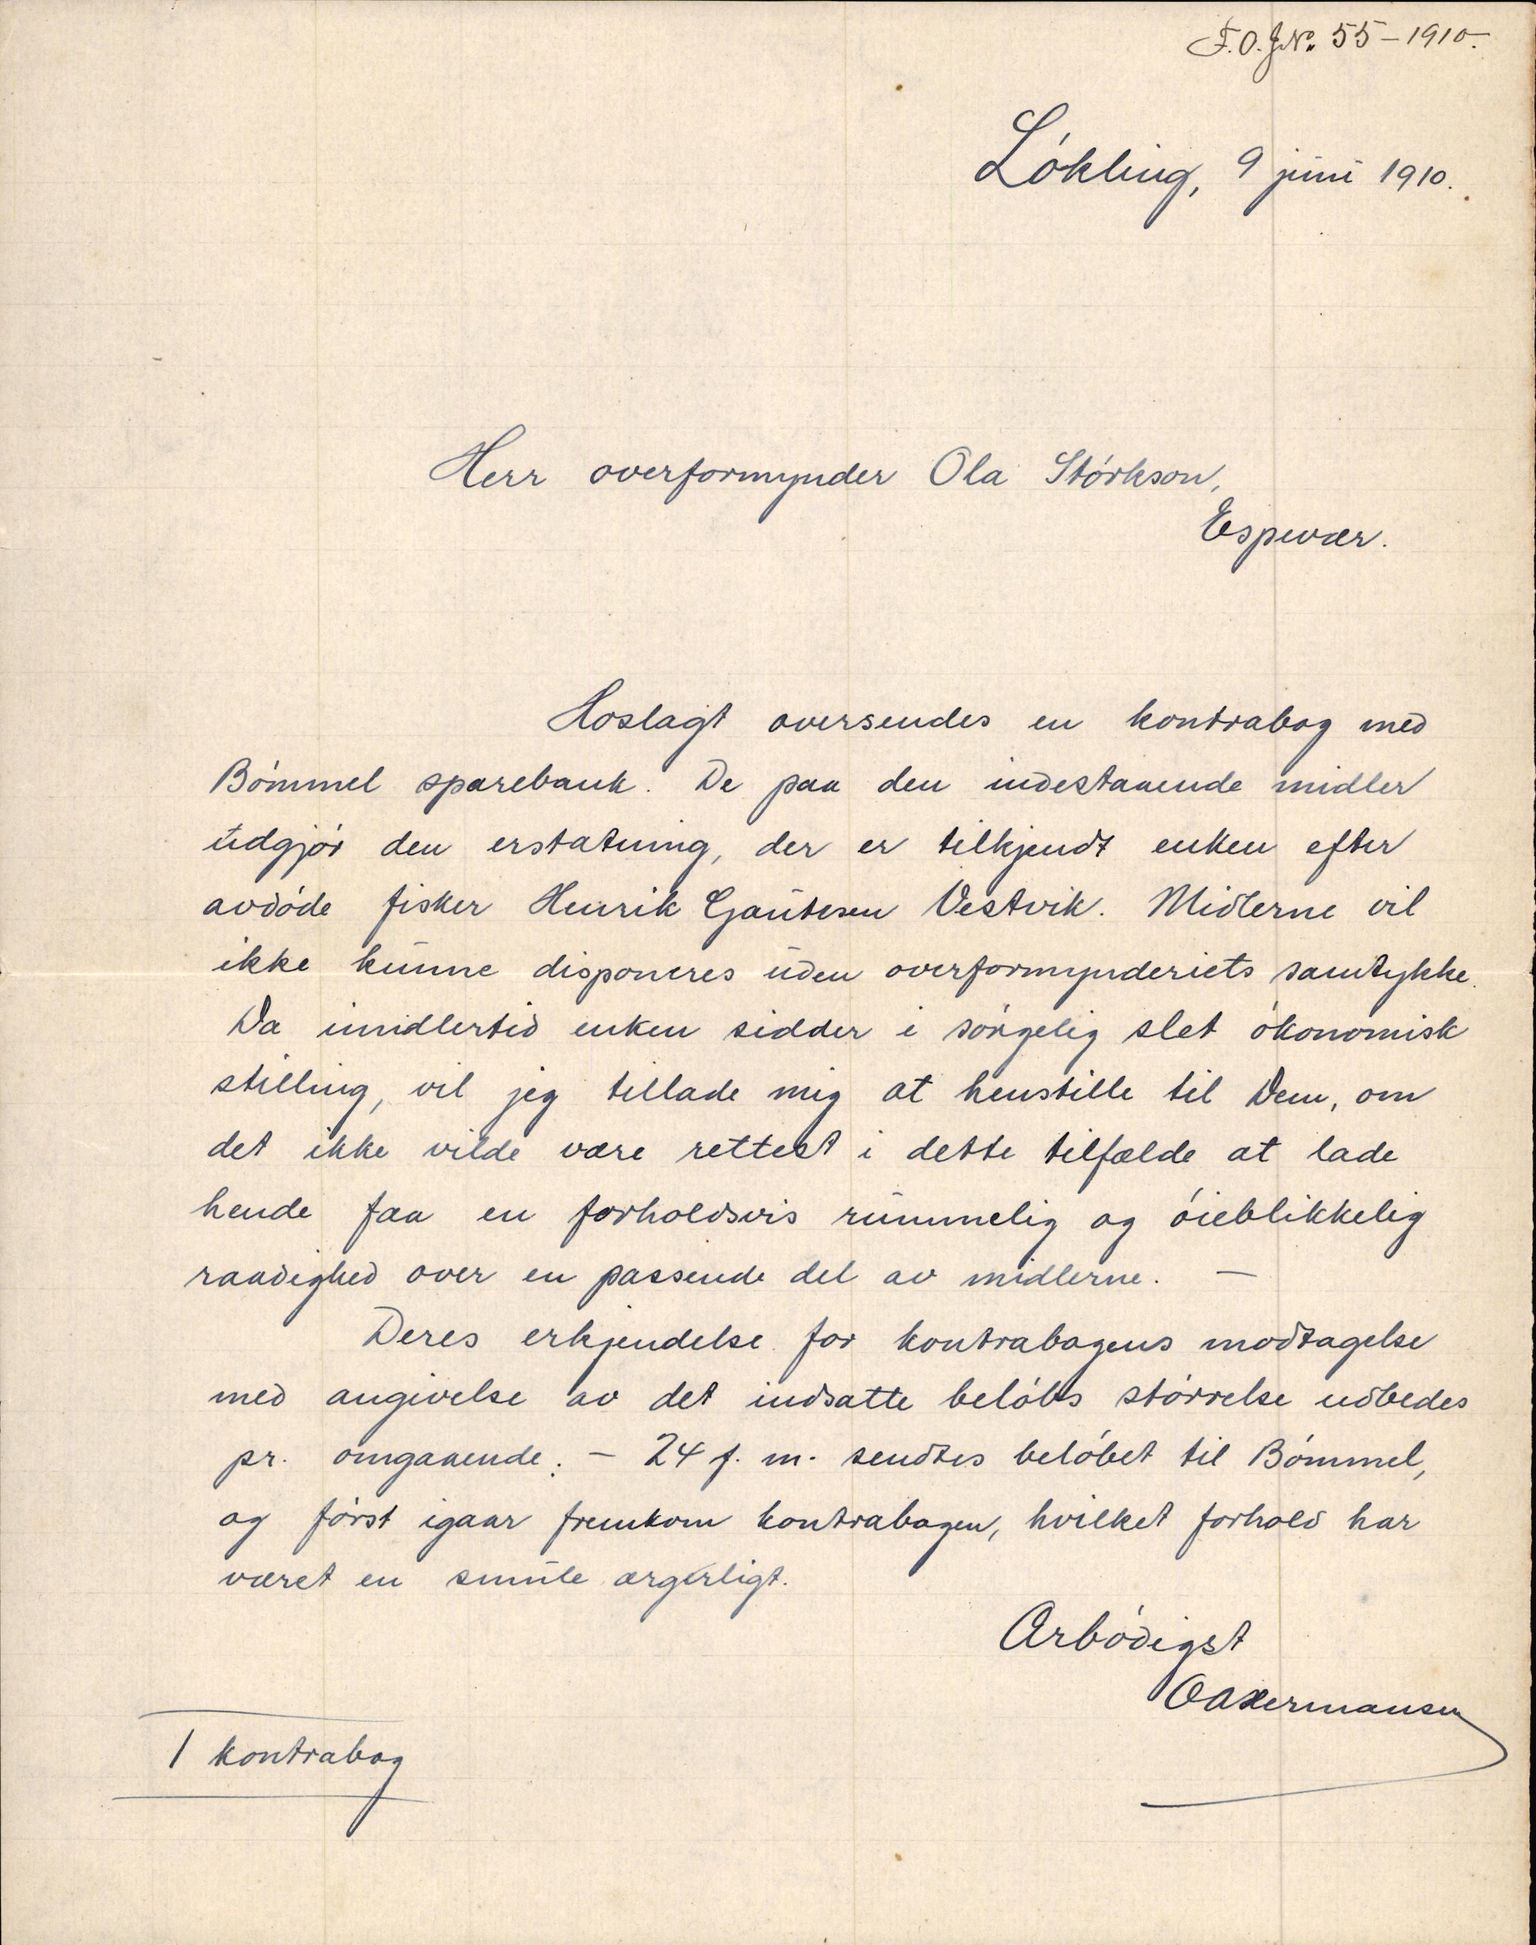 F.O.J.No. 55 – 1910.
Løkling, 9 juni 1910.
Herr overformynder Ola Størkson,
Espevær.
Hoslagt oversendes en kontrabog med
Bømmel sparebank. De paa den indestaaende midler
udgjør den erstatning, der er tilkjendt enken efter
avdøde fisker Henrik Gautesen Vestvik. Midlerne vil
ikke kunne disponeres uden overformynderiets samtykke.
Da imidlertid enken sidder i sørgelig slet økonomisk
stilling, vil jeg tillade mig at henstille til Dem, om
det ikke vilde være rettest i dette tilfælde at lade
hende faa en forholdsvis rummelig og øieblikkelig
raadighed over en passende del av midlerne. –
Deres erkjendelse for kontrabogens modtagelse
med angivelse av det indsatte beløbs størrelse udbedes
pr. omgaaende. – 24 f. m. sendtes beløbet til Bømmel,
og først igaar fremkom kontrabogen, hvilket forhold har
været en smule ærgerligt.
Ærbødigst
1 kontrabog